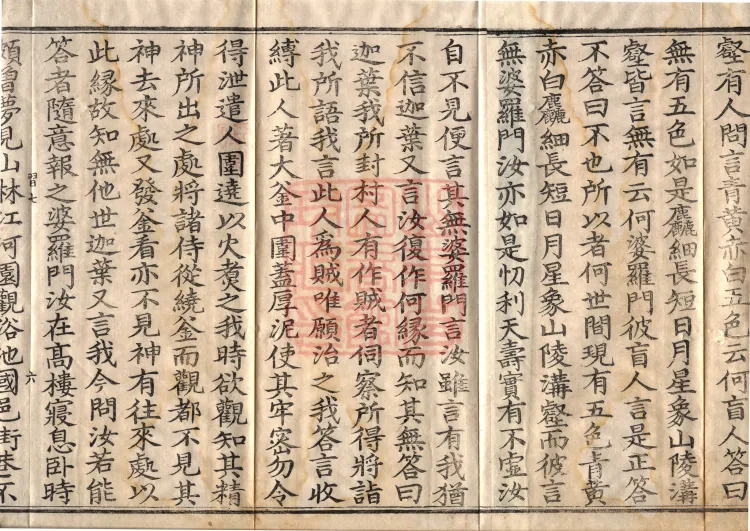 壑有人問言青黄赤白五色云何盲人荅曰
無有五色如是麤細長短日月星象山陵溝
壑皆言無有云何婆羅門彼盲人言是正荅
不荅曰不也所以者何世間現有五色青黄
赤白麤細長短日月星象山陵溝壑而彼言
無婆羅門汝亦如是忉利天壽實有不虛汝
自不見便言其無婆羅門言汝雖言有我猶
不信迦葉又言汝復作何縁而知其無荅曰
迦葉我所封村人有作賊者伺察所得將詣
我所語我言此人爲賊唯願治之我荅言收
縛此人著大釜中圍蓋厚泥使其牢密勿令
得泄遣人圍遶以火煑之我時欲觀知其精
神所出之處將諸侍從繞釜而觀都不見其
神去來處又發釜看亦不見神有往來處以
此縁故知無他世迦葉又言我今問汝若能
荅者隨意報之婆羅門汝在髙樓寢息卧時
習七 六
頗曾夢見山林江河園觀浴池國邑街巷不